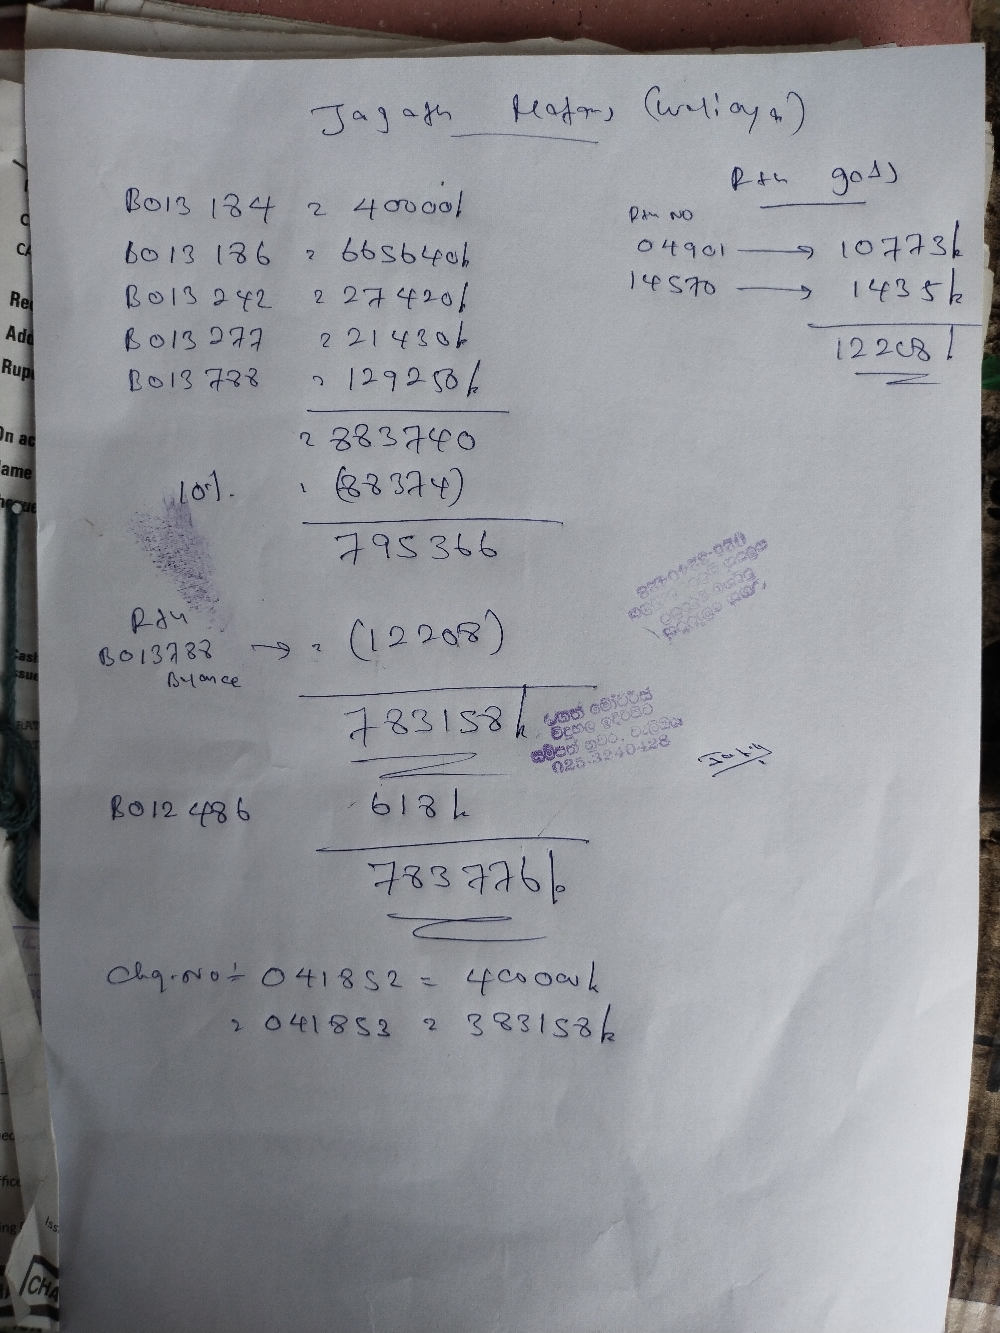 Jagath Motors (Welioya)
B013 184 = 40000/
B013 186 = 665640/
B013 242 = 27420/
B013 277 = 21430/
B013 788 = 129250/
= 883740
10%. (88374)
795366
Rtn
B013788 → = (12208)
Balance
783158/
B012 486 618/
783776/
Chq.No:- 041852 = 400000/
= 041853 = 383158/
Rtn goods
Rtn NO
04901 → 10773/
14570 → 1435/
12208/
ජගත් මෝටර්ස්
විදුහල ඉදිරිපිට
සම්පත් නුවර, වැලිඔය
025-3240428
CHA